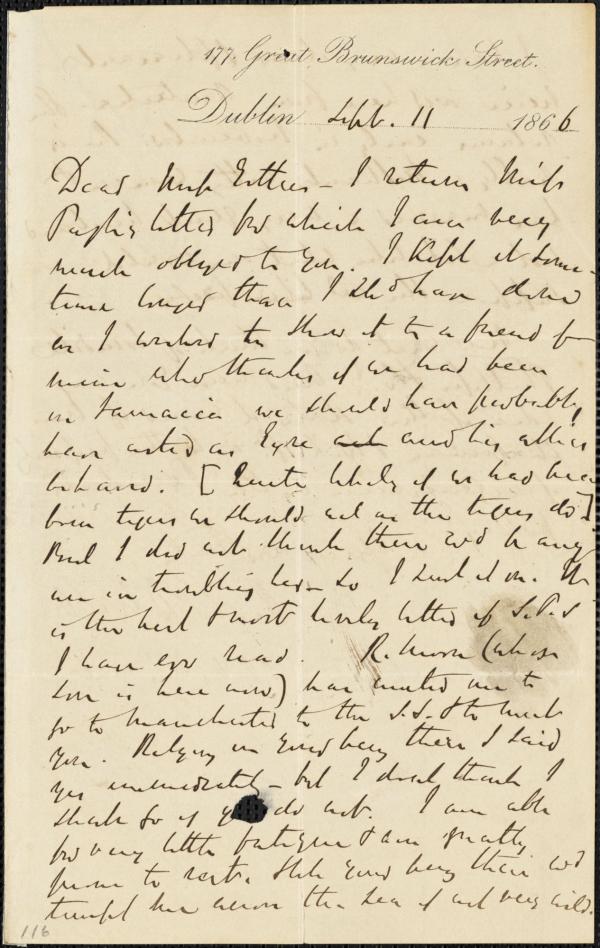 177. Great Brunswick Street.
Dublin Sept. 11 1866
Dear Miss Estlin – I return Miss
Pugh's letter for which I am very
much obliged to you. I kept it some-
time longer than I shd have done
as I wished to show it to a friend of
mine who thinks if we had been
in Jamaica we should have probably
have acted as Eyre and his allies
behaved. [Quite likely if we had been
born tigers we should act as the tigers do]
But I did not think there wd be any
use in troubling her – so I sent it on. It
is the best & most lovely letter of S.P.'s
I have ever read. R. Moore (whose
son is here now) has invited me to
go to Manchester to the S.S. & to meet
you. Relying on your being there I said
yes immediately – but I dont think I
shall go if you do not. I am able
for very little fatigue & am greatly
prone to rest. Still your being there wd
tempt me across the sea if not very wild.
116